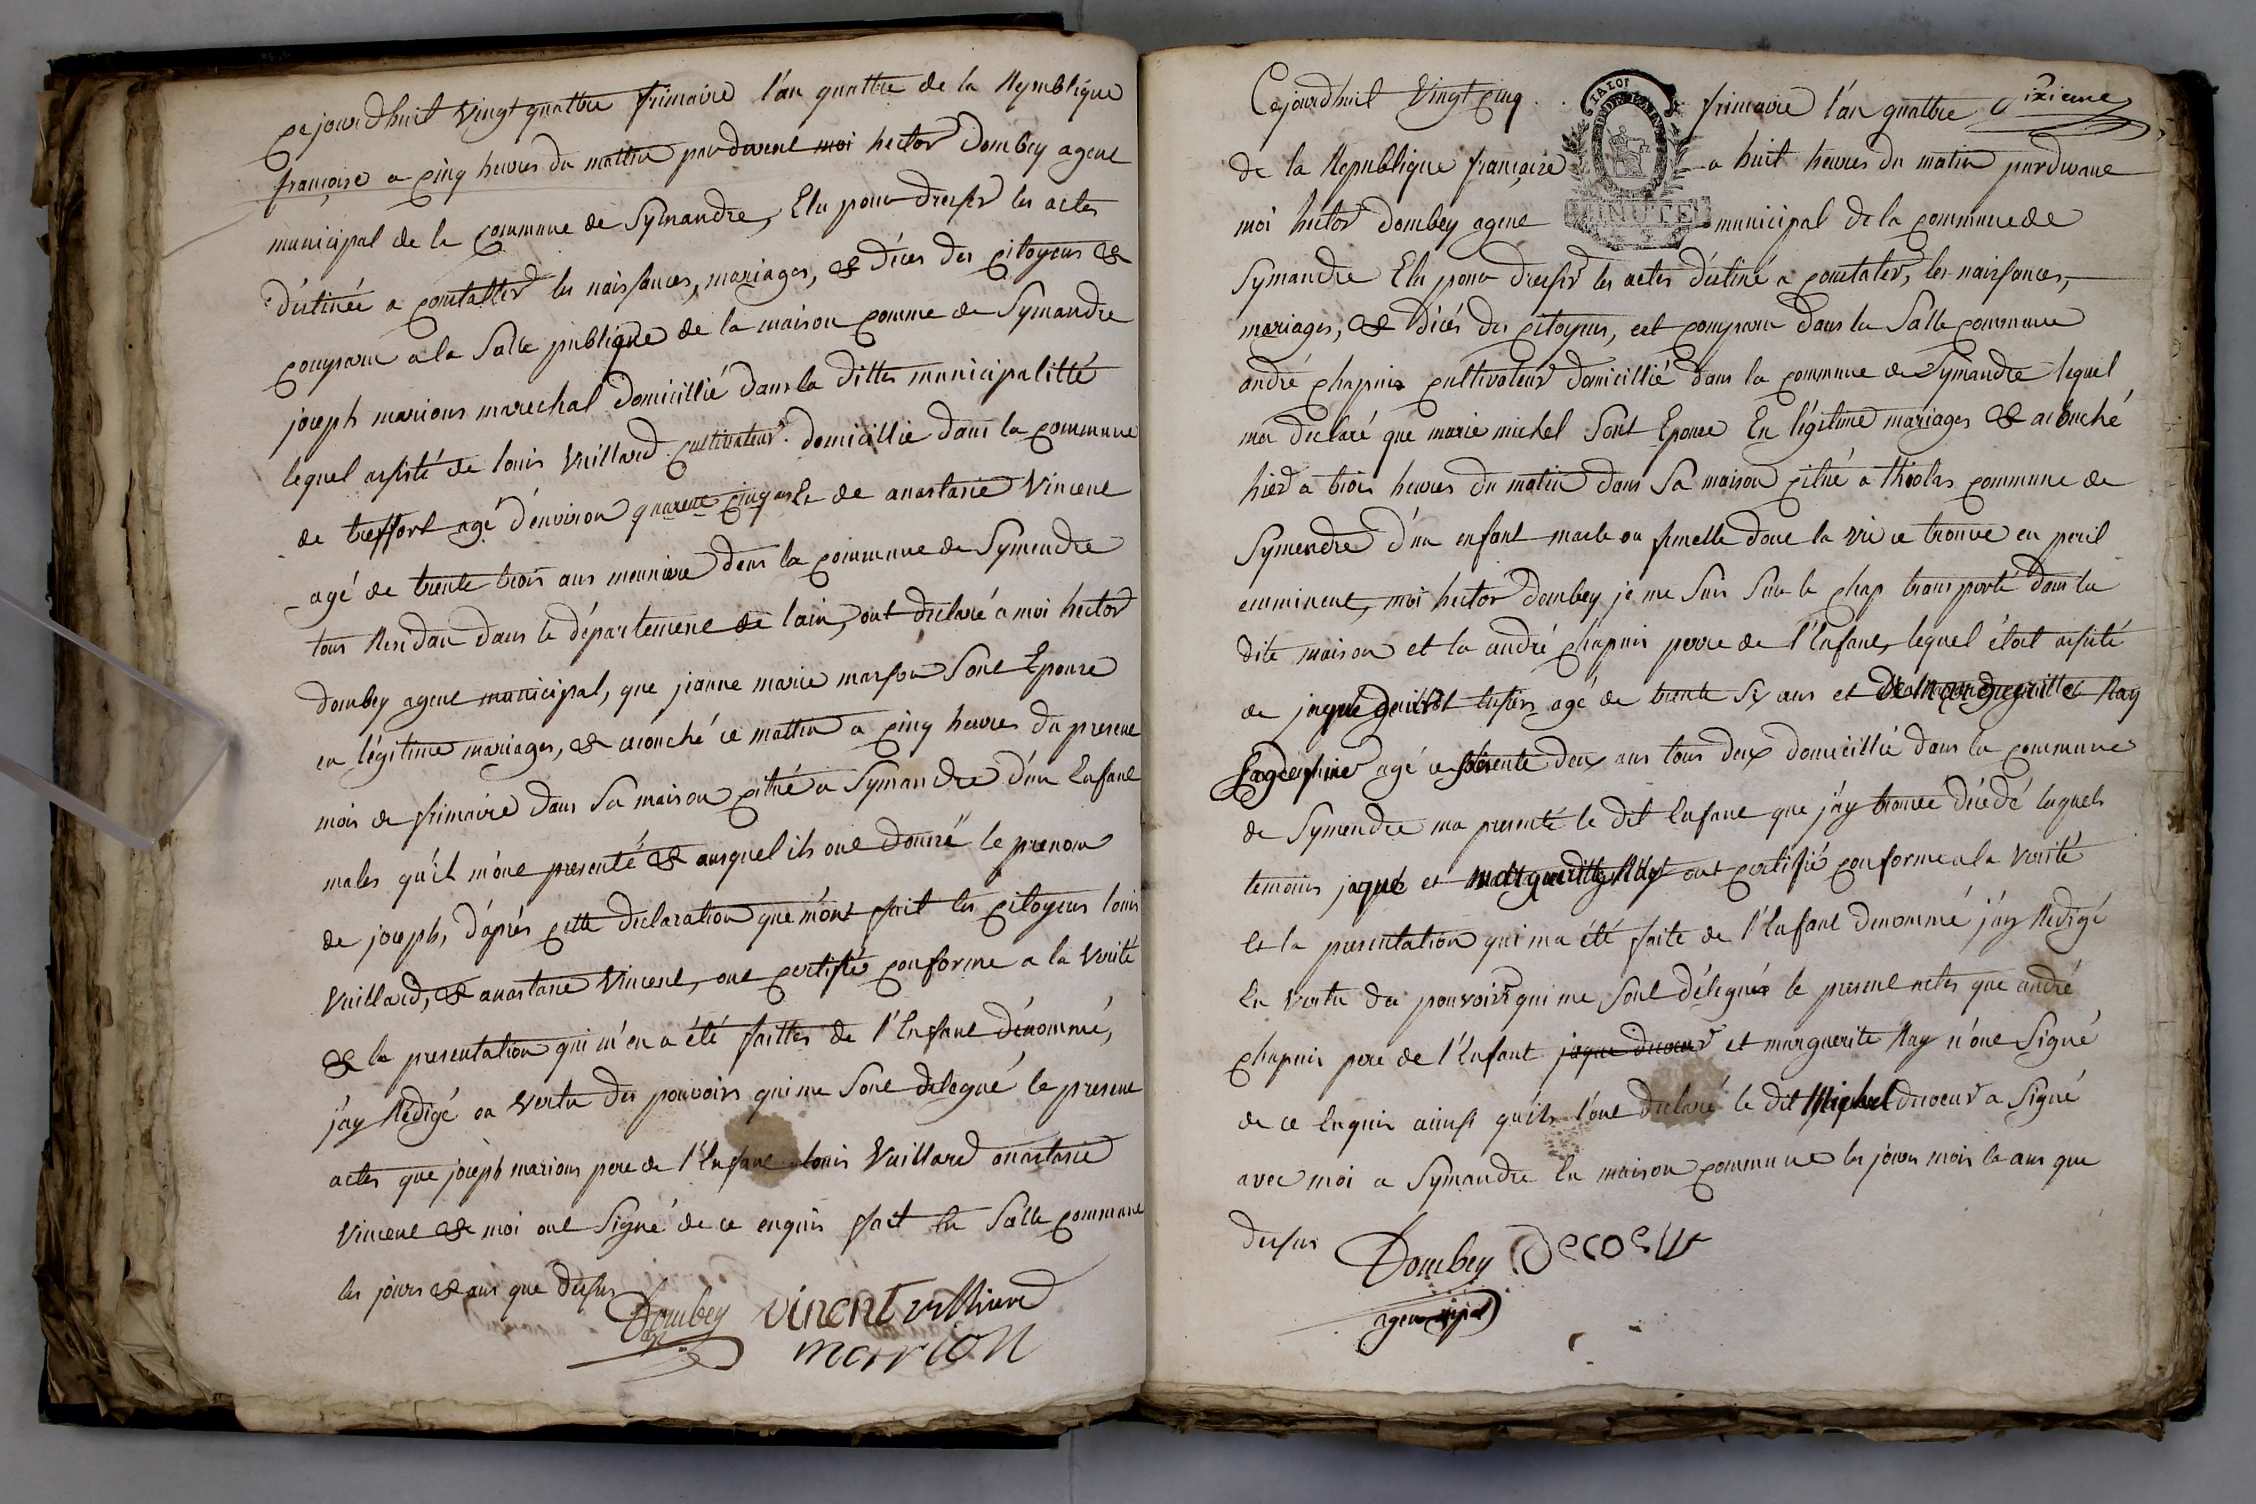 cejourdhuit vingt quattre frimaire l'an quattre de la Republique
françoise a cinq heures du mattin pardevent moi hector Dombey agent
municipal de la commune de Symandre, Elu pour dresser les actes
déstinée a constatter les naissances, mariages, & décès des citoyens &
comparu a la Salle publique de la maison comme de Symandre
joseph marions marechal domicillié dans la ditte municipalitté
lequel assisté de louis Vuillard cultivateur domicillié dans la commune
de treffort agé d'environ quarente cinq ans Et de anastasie Vincent
agé de trente trois ans meuniere dens la commune de Symendre
tous Residan dans le département de l'ain, ont declaré a moi hector
dombey agent municipal, que jeanne marie masson Sont Epouse
en légitime mariages, & acouché ce mattin a cinq heures du present
mois de frimaire dans Sa maison citué a Symandre d'un Enfant
males qu'il m'ont presenté & auquel ils ont donné le prenom
de joseph, d'après cette declaration que m'ont fait les citoyens louis
Vuillard, & anastasie Vincent, ont certifié conforme a la Verité
& la presentation qui m'en a été faittes de l'Enfant dénommé,
j'ay Rédigé en Vertu des pouvoirs qui me Sont delegué le present
actes que joseph marions pere de l'Enfant louis Vuillard anastasie
Vincent & moi ont Signé de ce enquis fait En Salle commune
les jours & ans que dessus
Dombey vincent
agt marrion
Cejourdhuit Vingt cinq frimaire l'an quattre
LA LOI
MINUTE
de la Republique françoise a huit heures du matin pardevant
moi hector dombey agent municipal de la commune de
Symandre Elu pour dresser les actes déstiné a constater, les naissances,
mariages, & décés des citoyens, est comparu dans la Salle commune
andré chapuis cultivateur domicillié dans la commune de Symandre lequel
ma declaré que marie michel Sont Epouse En légitime mariages & acouché
hier a trois heures du matin dans Sa maison citué a thiolas commune de
Symendre d'un enfant masle ou femelle dont la vie ce trouve en peril
emminent, moi hector dombey je me Suis Sur le chap transporté dans la
dite maison et la andré chapuis perre de l'Enfant, lequel étoit assisté
de jaque agé de trente Six ans et Ray
agé de deux ans tous deux domicillié dans la commune
de Symendre ma presenté le dit Enfant que j'ay trouvé décédé lesquels
temoins jaque et margueritte Ray ont certifié conforme a la Verité
Et la presentation qui ma été faite de l'Enfant denommé j'ay Redigé
En Vertu des pouvoirs qui me Sont délegués le present actes que andré
chapuis pere de l'Enfant jaque decoeur et marguerite Ray n'ont Signé
de ce Enquis ainsi qu'ils l'ont declaré le dit Michel decoeur a Signé
avec moi a Symandre En maison commune les jours mois Et ans que
dessus
Dombey Decoeur
agent